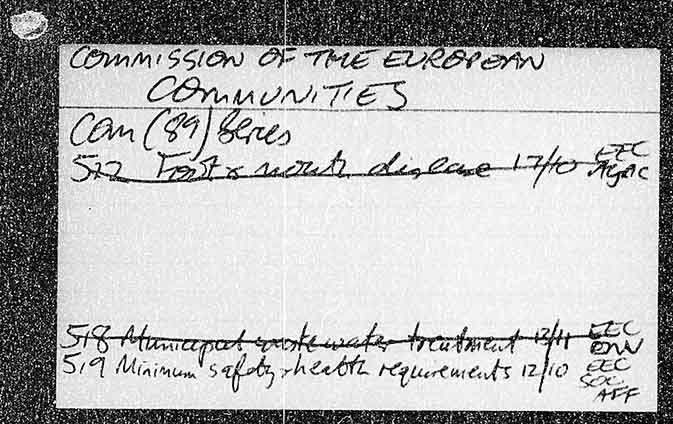 COMMISSION OF THE EUROPEAN
COMMUNITIES
Com (89) Series
512 Foot & mouth disease 12/10 EEC
Agric
518 Municipal waste water treatment 13/11 EEC
ENV
519 Minimum safety & health requirements 12/10 EEC
SOC
AFF